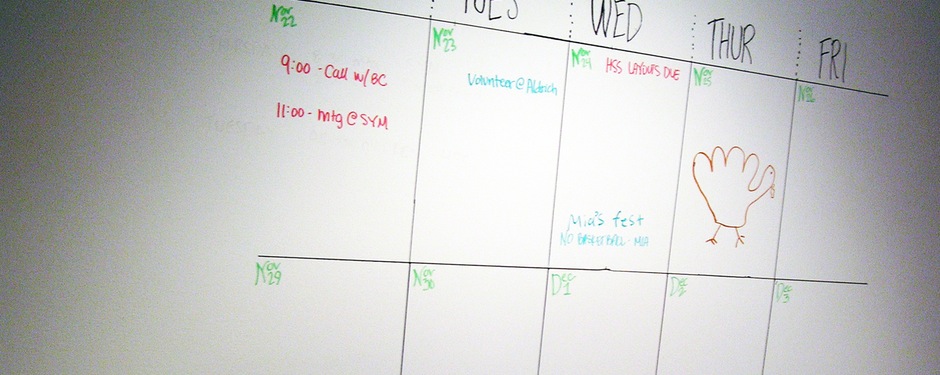 TUES
WED
THUR
FRI
Nov 22
9:00 - Call w/ BC
11:00 - mtg @ SYM
Nov 23
Volunteer @ Aldrich
Nov 24
HSS LAYOUTS DUE
Mia's fest
NO BASKETBALL - MIA
Nov 25
Nov 29
Nov 30
Dec 1
Dec 2
Dec 3